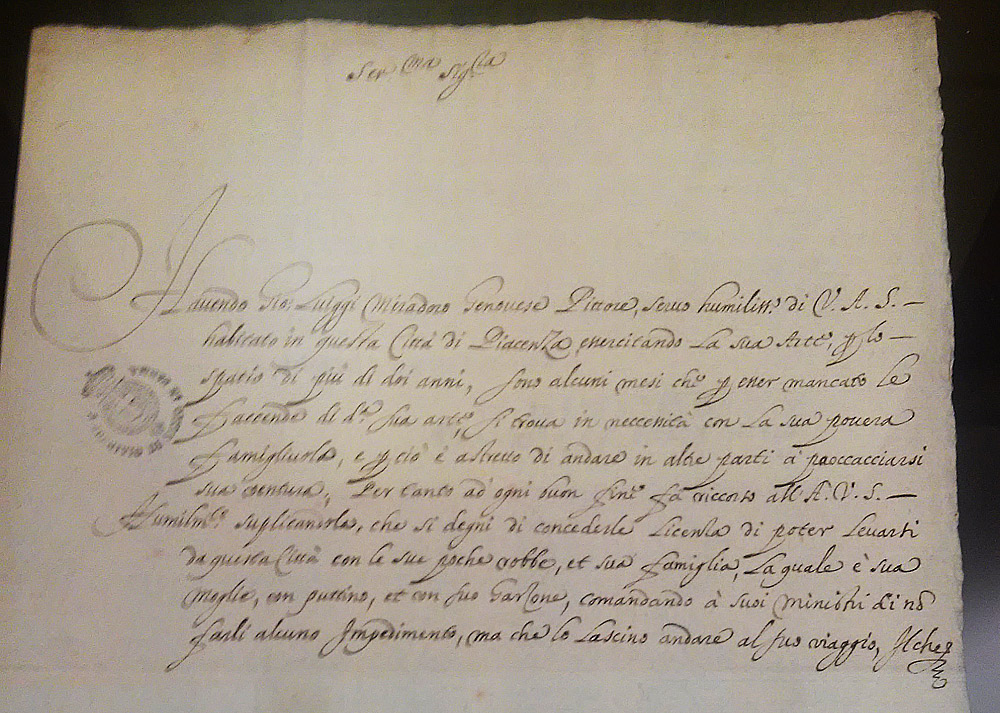 Ser.ma Sig.ra
Havendo Gio: Luiggi Miradoro Genovese Pittore, servo humiliss.o di V. A. S. —
habitato in questa Città di Piacenza, essercitando la sua Arte, p lo —
spatio di più di doi anni, sono alcuni mesi che p esser mancato le
faccende di d.a sua arte, si trova in neccessità con la sua povera
famigliola, e p ciò è astretto di andare in altre parti à procacciarsi
sua ventura, Per tanto ad ogni buon fine fà riccorso all' A. V. S. —
Humilm.te suplicandola, che si degni di concederle Licenza di poter levarsi
da questa Città con le sue poche robbe, et sua famiglia, la quale è sua
moglie, un puttino, et un suo Garzone, comandando à suoi ministri di nō
farli alcuno Impedimento, ma che lo lascino andare al suo viaggio, Il che